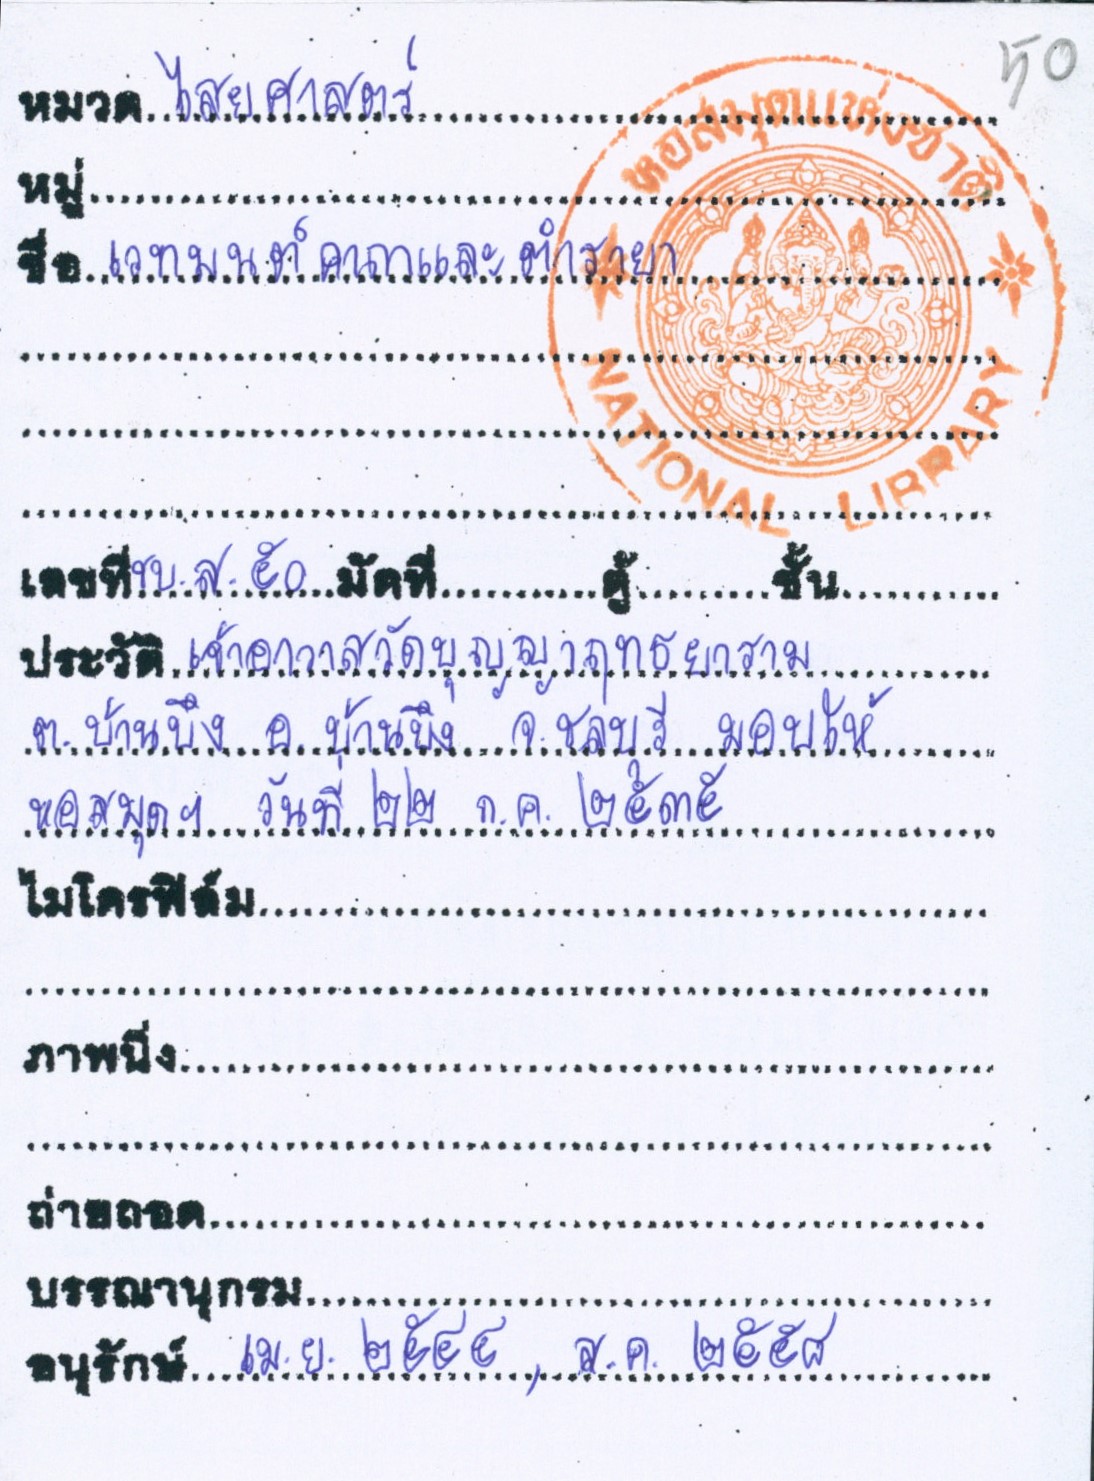 ๕๐
หมวด ไสยศาสตร์
หมู่
ชื่อ เวทมนต์ คาถาและตำรายา
หอสมุดแห่งชาติ
NATIONAL LIBRARY
เลขที่ ชบ.ส. ๕๐ มัดที่ ตู้ ชั้น
ประวัติ เจ้าอาวาสวัดบุญญาฤทธยาราม
ต. บ้านบึง อ. บ้านบึง จ. ชลบุรี มอบให้
หอสมุดฯ วันที่ ๒๒ ก.ค. ๒๕๓๕
ไมโครฟิล์ม
ภาพนิ่ง
ถ่ายถอด
บรรณานุกรม
อนุรักษ์ เม.ย. ๒๕๔๔ , ส.ค. ๒๕๕๘